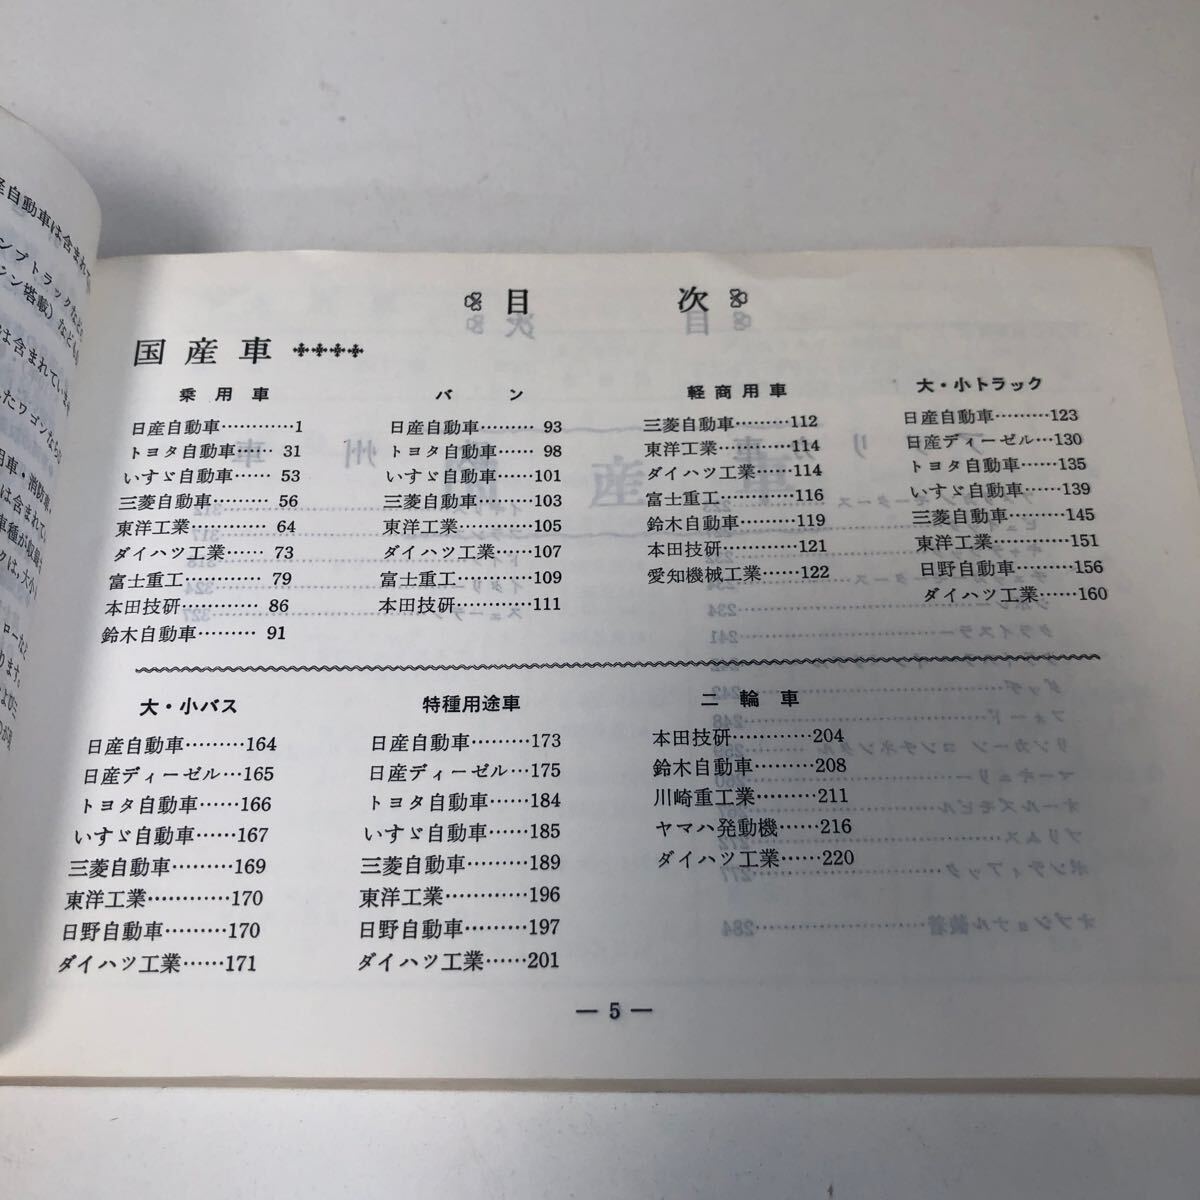 目　次
国産車
乗用車
日産自動車…………1
トヨタ自動車……31
いすゞ自動車……53
三菱自動車………56
東洋工業…………64
ダイハツ工業……73
富士重工…………79
本田技研…………86
鈴木自動車………91
バン
日産自動車………93
トヨタ自動車……98
いすゞ自動車……101
三菱自動車………103
東洋工業…………105
ダイハツ工業……107
富士重工…………109
本田技研…………111
軽商用車
三菱自動車………112
東洋工業…………114
ダイハツ工業……114
富士重工…………116
鈴木自動車………119
本田技研…………121
愛知機械工業……122
大・小トラック
日産自動車………123
日産ディーゼル…130
トヨタ自動車……135
いすゞ自動車……139
三菱自動車………145
東洋工業…………151
日野自動車………156
ダイハツ工業……160
大・小バス
日産自動車………164
日産ディーゼル…165
トヨタ自動車……166
いすゞ自動車……167
三菱自動車………169
東洋工業…………170
日野自動車………170
ダイハツ工業……171
特種用途車
日産自動車………173
日産ディーゼル…175
トヨタ自動車……184
いすゞ自動車……185
三菱自動車………189
東洋工業…………196
日野自動車………197
ダイハツ工業……201
二輪車
本田技研…………204
鈴木自動車………208
川崎重工業………211
ヤマハ発動機……216
ダイハツ工業……220
— 5 —